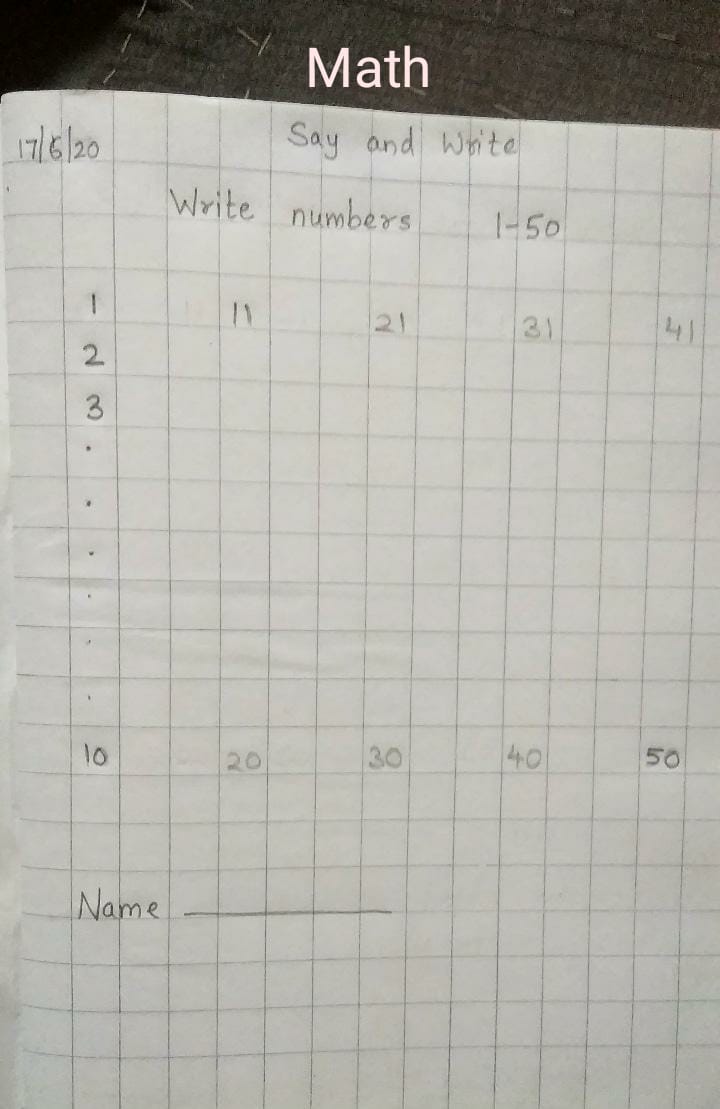 Math
17/6/20 Say and Write
Write numbers 1-50
1 11 21 31 41
2
3
.
.
.
.
.
.
10 20 30 40 50
Name